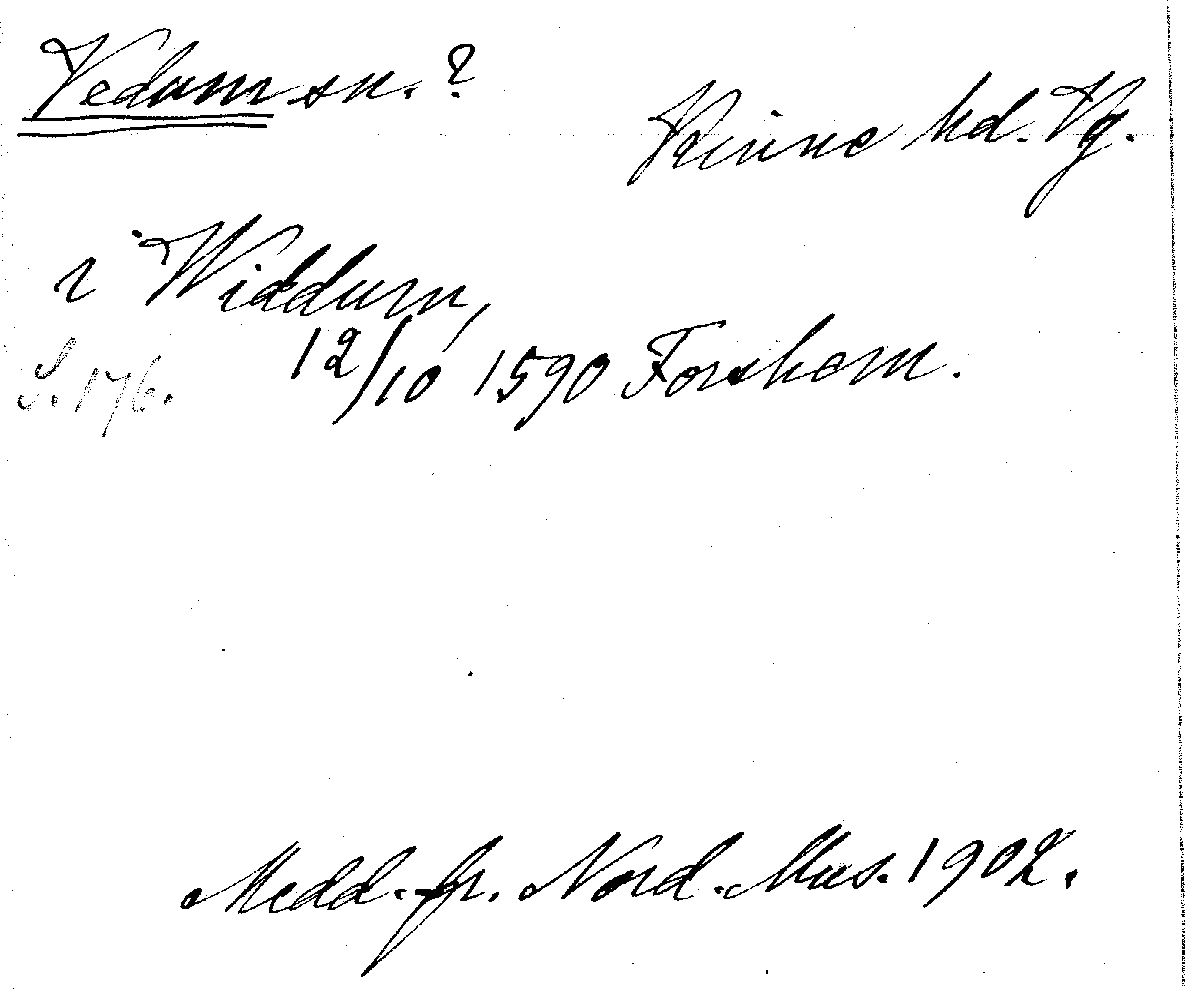 Vedum sn. ?
Kinne hd. Vg.
i Widdum,
12/10 1590 Forshem.
S. 176.
Medd. fr. Nord. Mus. 1902.